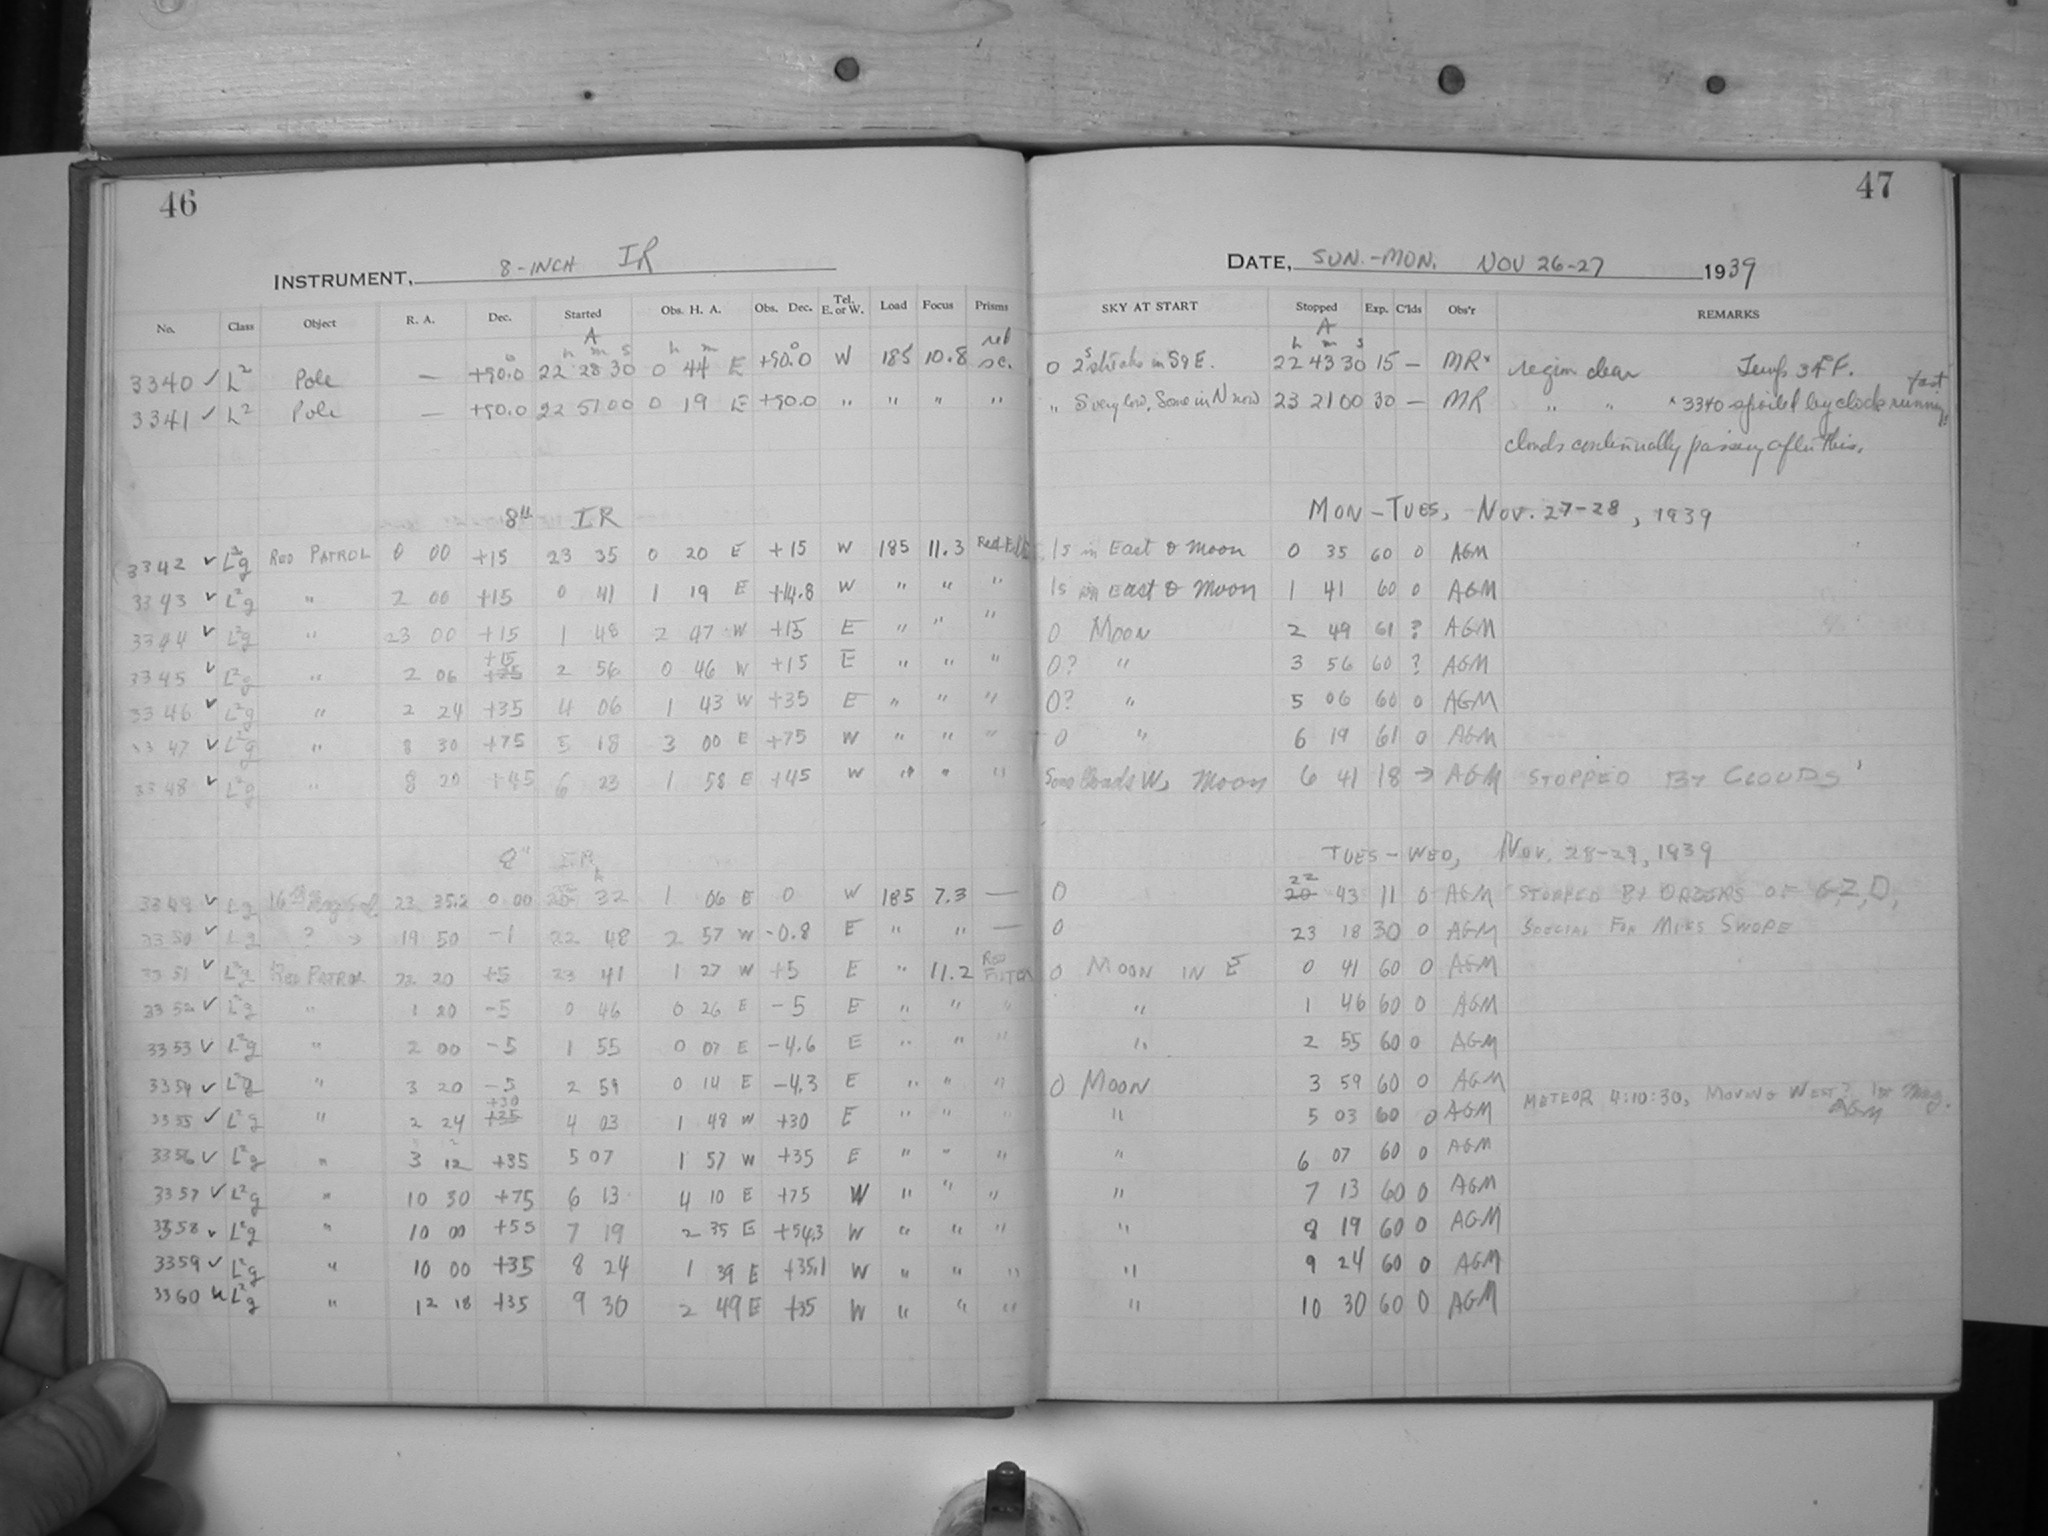 46
47
INSTRUMENT, 8-INCH IR
DATE, SUN.-MON. NOV 26-27 1939
No. Class Object R. A. Dec. Started Obs. H. A. Obs. Dec. Tel. E. or W. Load Focus Prisms SKY AT START Stopped Exp. C'lds Obs'r REMARKS
A A
h m s h m red h m s
3340 ✓ L² Pole — +90.0 22 28 30 0 44 E +90.0 W 185 10.8 sc. 0 2 streaks in S9E. 22 43 30 15 — MRˣ region clear Temp 34°F.
3341 ✓ L² Pole — +90.0 22 51 00 0 19 E +90.0 " " " " " S very low, Some in N now 23 21 00 30 — MR " " ˣ 3340 spoiled by clock running fast
clouds continually passing after this.
8" IR MON-TUES, NOV. 27-28, 1939
3342 ✓ L²g RED PATROL 0 00 +15 23 35 0 20 E +15 W 185 11.3 1s in East & Moon 0 35 60 0 AGM
3343 ✓ L²g " 2 00 +15 0 41 1 19 E +14.8 W " " " 1s in East & Moon 1 41 60 0 AGM
3344 ✓ L²g " 23 00 +15 1 48 2 47 W +15 E " " " 0 MOON 2 49 61 ? AGM
3345 ✓ L²g " 2 06 +15 2 56 0 46 W +15 E " " " 0? " 3 56 60 ? AGM
3346 ✓ L²g " 2 24 +35 4 06 1 43 W +35 E " " " 0? " 5 06 60 0 AGM
3347 ✓ L²g " 8 30 +75 5 18 3 00 E +75 W " " " 0 " 6 19 61 0 AGM
3348 ✓ L²g " 8 20 +45 6 23 1 58 E +45 W " " " Some Clouds W, Moon 6 41 18 → AGM STOPPED BY CLOUDS
8" IR TUES-WED, NOV. 28-29, 1939
3349 ✓ Lg 23 35.2 0 00 32 1 06 E 0 W 185 7.3 — 0 22 43 11 0 AGM STOPPED BY ORDERS OF G,Z,D,
3350 ✓ Lg ? 19 50 -1 22 48 2 57 W -0.8 E " " — 0 23 18 30 0 AGM SPECIAL FOR MISS SWOPE
3351 ✓ L²g RED PATROL 22 20 +5 23 41 1 27 W +5 E " 11.2 RED FILTER 0 MOON IN E 0 41 60 0 AGM
3352 ✓ L²g " 1 20 -5 0 46 0 26 E -5 E " " " " 1 46 60 0 AGM
3353 ✓ L²g " 2 00 -5 1 55 0 07 E -4.6 E " " " " 2 55 60 0 AGM
3354 ✓ L²g " 3 20 -5 2 59 0 14 E -4.3 E " " " 0 MOON 3 59 60 0 AGM
METEOR 4:10:30, MOVING WEST? 1st Mag. AGM
3355 ✓ L²g " 2 24 +30 4 03 1 48 W +30 E " " " " 5 03 60 0 AGM
3356 ✓ L²g " 3 12 +35 5 07 1 57 W +35 E " " " " 6 07 60 0 AGM
3357 ✓ L²g " 10 30 +75 6 13 4 10 E +75 W " " " " 7 13 60 0 AGM
3358 ✓ L²g " 10 00 +55 7 19 2 35 E +54.3 W " " " " 8 19 60 0 AGM
3359 ✓ L²g " 10 00 +35 8 24 1 39 E +35.1 W " " " " 9 24 60 0 AGM
3360 ✓ L²g " 12 18 +35 9 30 2 49 E +35 W " " " " 10 30 60 0 AGM